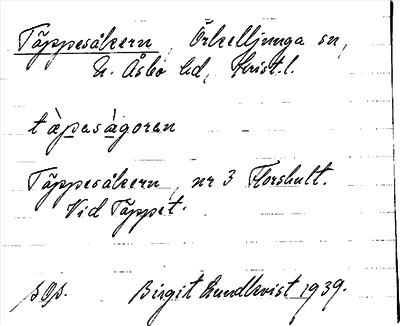 Täppesåkern, Örkelljunga sn,
N. Åsbo hd, Krist. l.
tàpasàgoran
Täppesåkern, nr 3 Florshult.
Vid Täppet.
Birgit Lundkvist 1939.